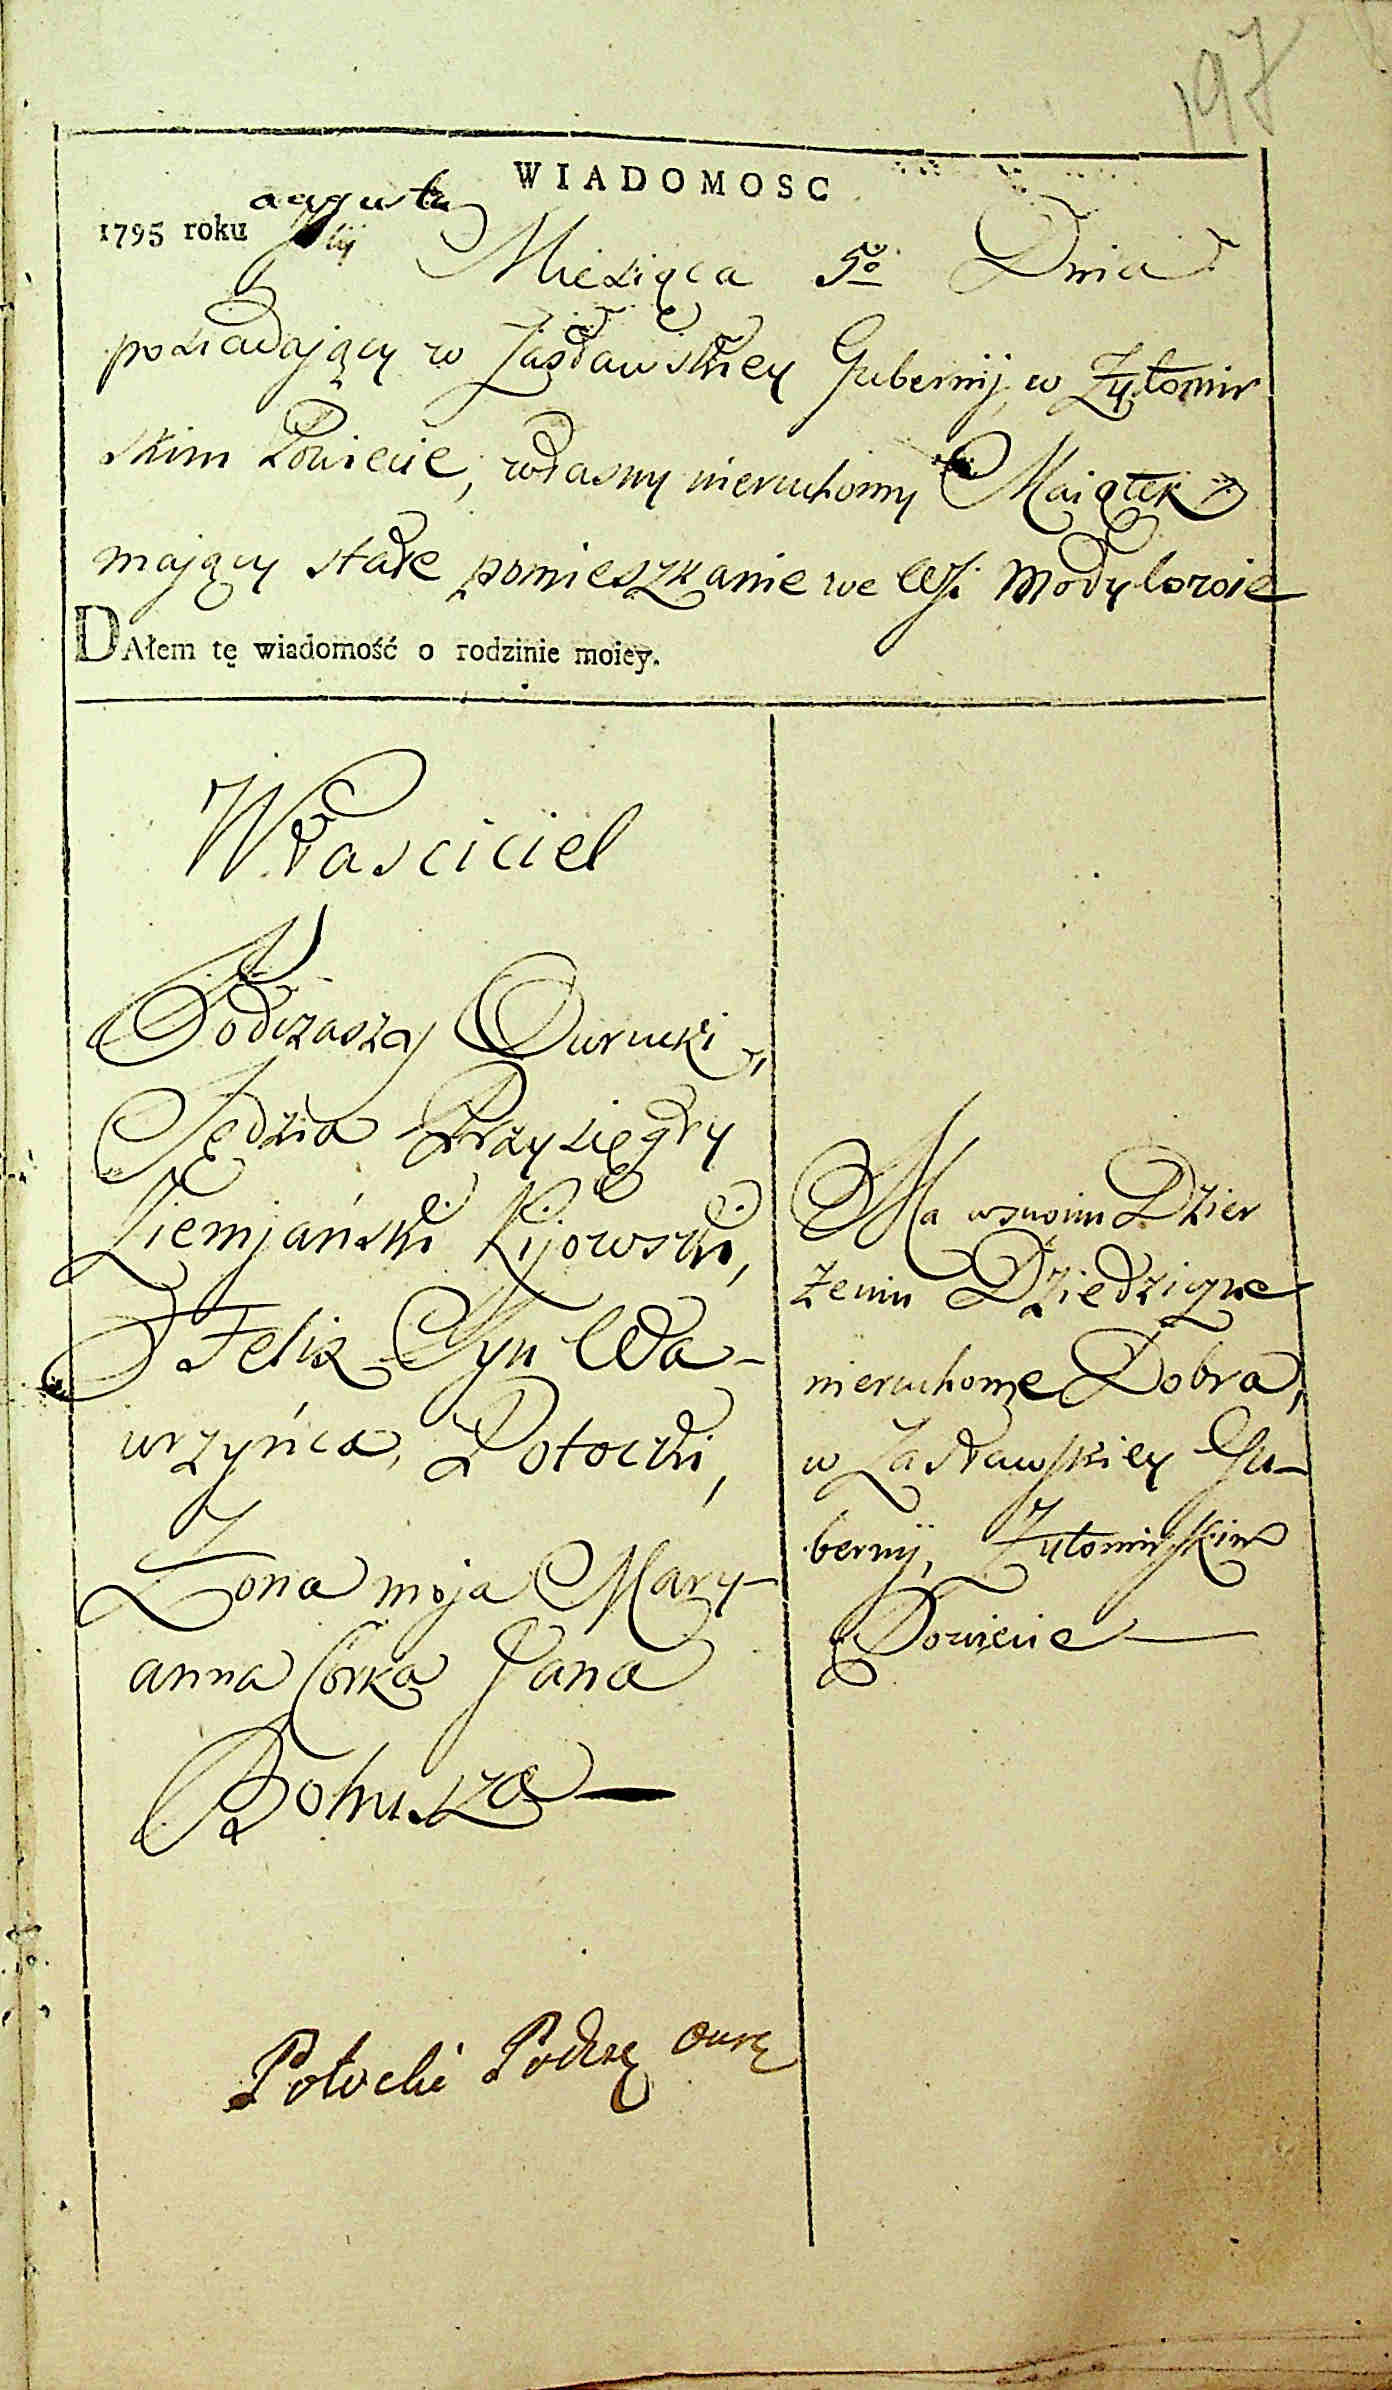 197
WIADOMOSC
augusta
1795 roku Julij Miesiąca 5º Dnia
posiadający w Zasławskiey Gubernij, w Zytomir
skim Powiecie, własny nieruchomy Maiątek
mający stałe pomieszkanie we Wsi Modylowie
DAłem tę wiadomość o rodzinie moiey.
Własciciel
Podczaszy Owrucki,
Sędzia Przysięgły
Ziemjański Kijowski,
Felix Syn Wa-
wrzyńca, Potocki,
Zona moja Mary-
anna Corka Jana
Bohusza
Ma w swoim Dzier
żeniu Dziedziczne
nieruchome Dobra,
w Zasławskiey Gu-
bernij, Zytomirskim
Powiecie
Potocki Podczę Owrę